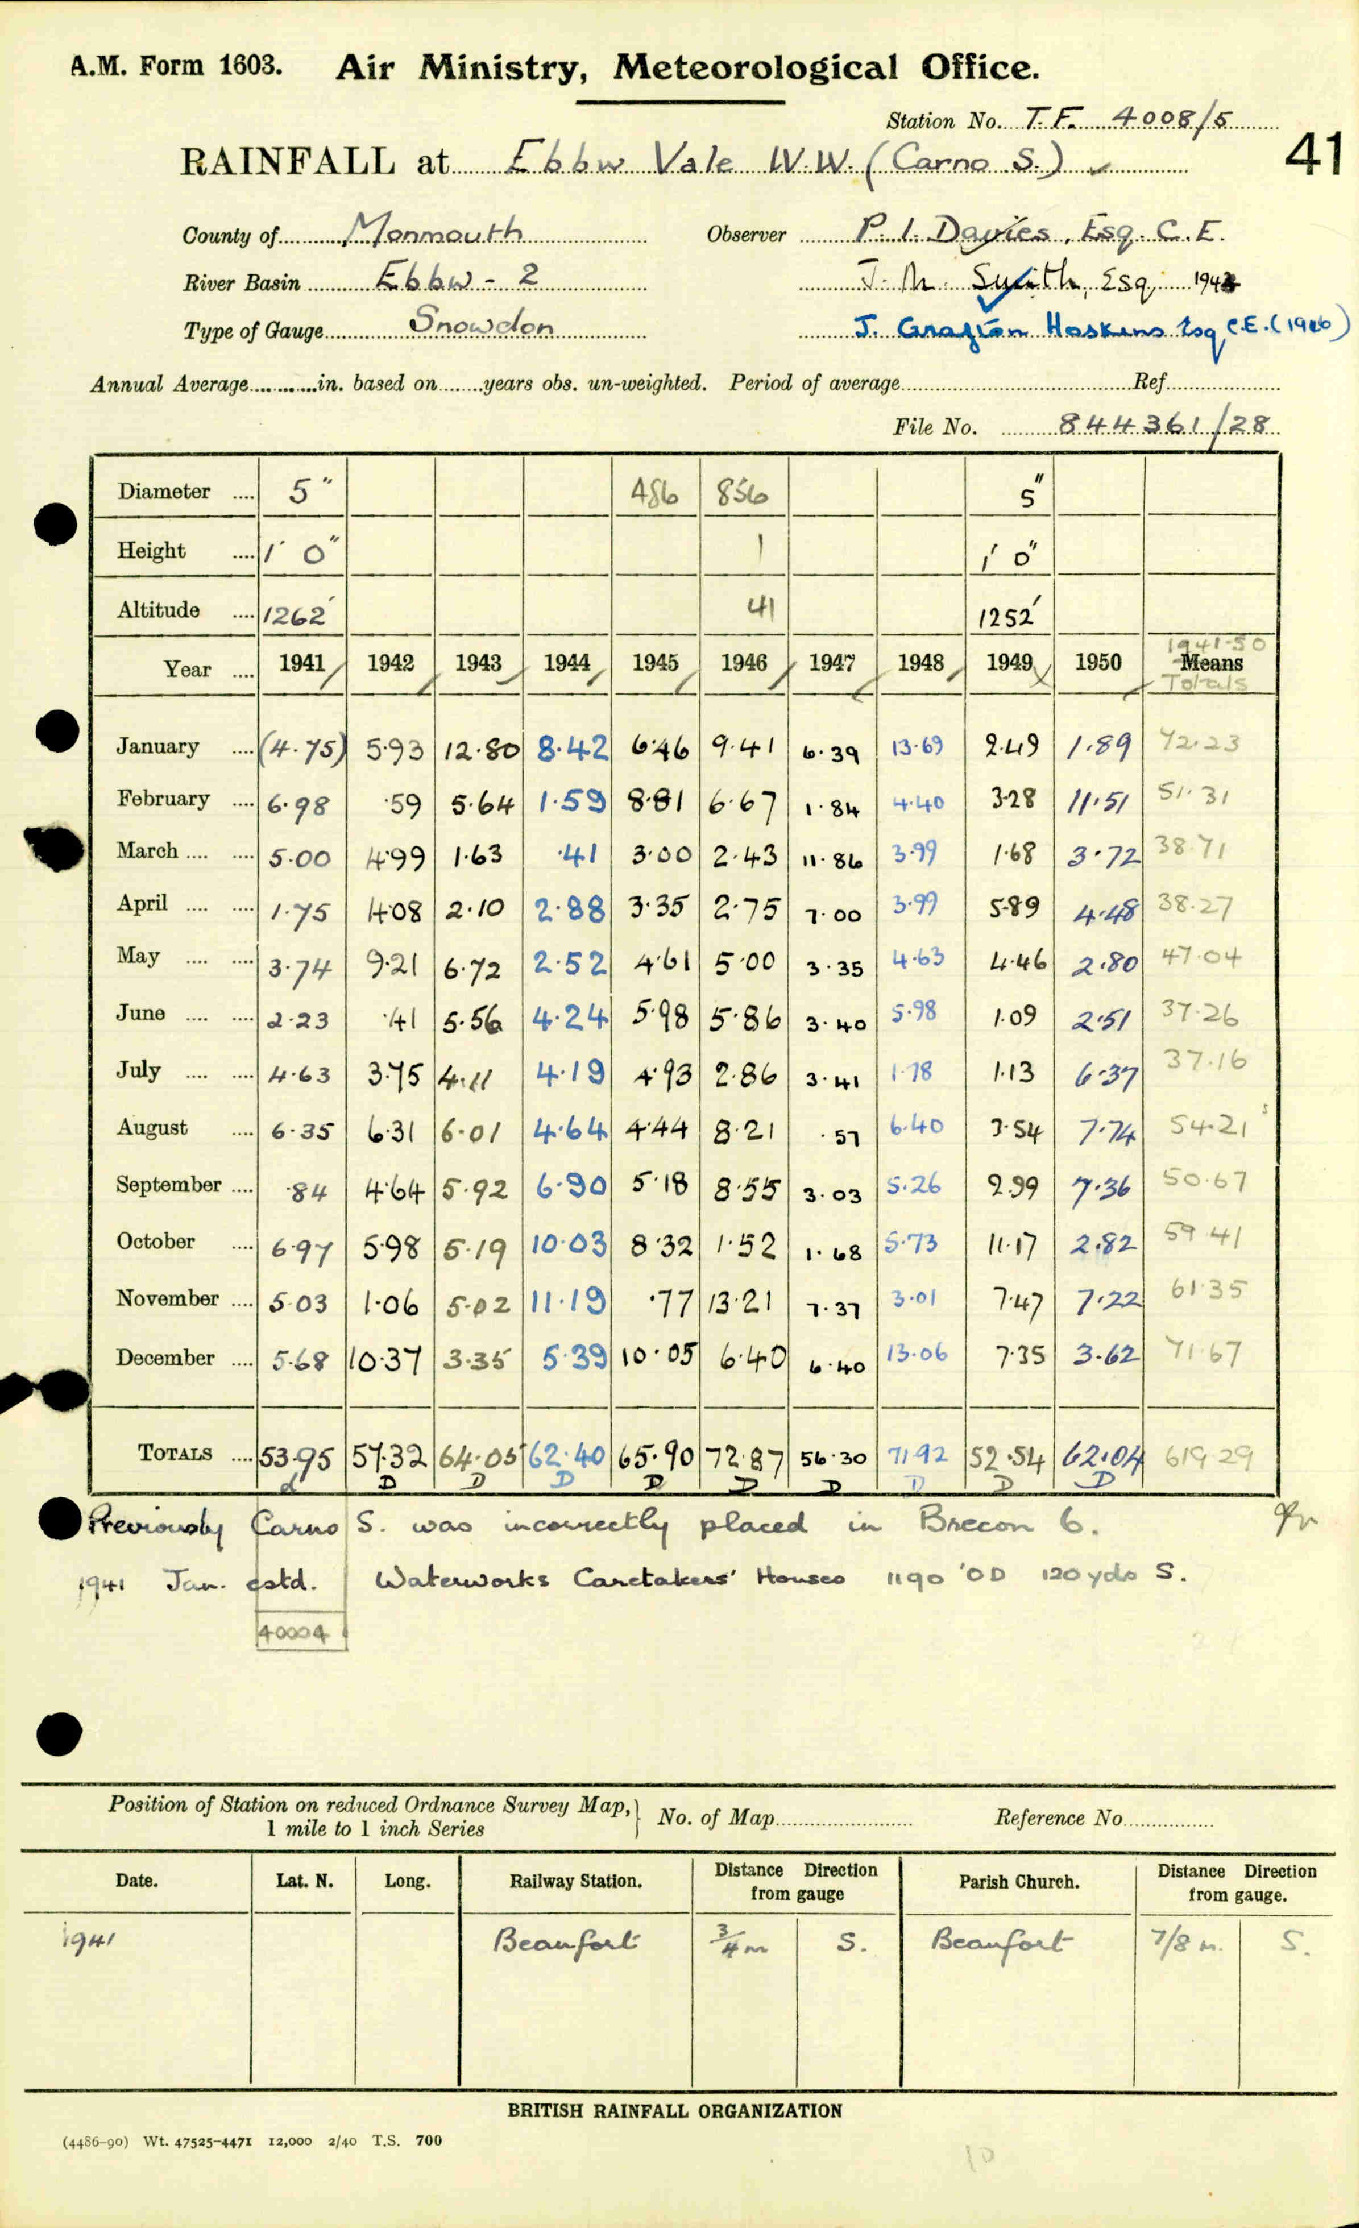 A.M. Form 1603. Air Ministry, Meteorological Office.
Station No. T.F. 4008/5
41
RAINFALL at Ebbw Vale W.W. (Carno S.) ✓
County of Monmouth Observer P. I. Davies, Esq. C.E.
River Basin Ebbw - 2 J. M. Smith, Esq 194
Type of Gauge Snowdon J. Grafton Hoskins Esq C.E. (1946)
Annual Average in. based on years obs. un-weighted. Period of average Ref.
File No. 844361/28
Diameter 5" 486 856 5"
Height 1' 0" 1 1' 0"
Altitude 1262' 41 1252'
1941-50
Year 1941 1942 1943 1944 1945 1946 1947 1948 1949 1950 Means
Totals
January (4.75) 5.93 12.80 8.42 6.46 9.41 6.39 13.69 2.49 1.89 72.23
February 6.98 .59 5.64 1.59 8.81 6.67 1.84 4.40 3.28 11.51 51.31
March 5.00 4.99 1.63 .41 3.00 2.43 11.86 3.99 1.68 3.72 38.71
April 1.75 4.08 2.10 2.88 3.35 2.75 7.00 3.99 5.89 4.48 38.27
May 3.74 9.21 6.72 2.52 4.61 5.00 3.35 4.63 4.46 2.80 47.04
June 2.23 .41 5.56 4.24 5.98 5.86 3.40 5.98 1.09 2.51 37.26
July 4.63 3.75 4.11 4.19 4.93 2.86 3.41 1.78 1.13 6.37 37.16
August 6.35 6.31 6.01 4.64 4.44 8.21 .57 6.40 3.54 7.74 54.21
September .84 4.64 5.92 6.90 5.18 8.55 3.03 5.26 2.99 7.36 50.67
October 6.97 5.98 5.19 10.03 8.32 1.52 1.68 5.73 11.17 2.82 59.41
November 5.03 1.06 5.02 11.19 .77 13.21 7.37 3.01 7.47 7.22 61.35
December 5.68 10.37 3.35 5.39 10.05 6.40 6.40 13.06 7.35 3.62 71.67
TOTALS 53.95 57.32 64.05 62.40 65.90 72.87 56.30 71.92 52.54 62.04 619.29
D D D D D D D D D
Previously Carno S. was incorrectly placed in Brecon 6.
1941 Jan. estd. Waterworks Caretakers' Houses 1190 'OD 120 yds S.
40004
Position of Station on reduced Ordnance Survey Map, No. of Map Reference No.
1 mile to 1 inch Series
Date. Lat. N. Long. Railway Station. Distance Direction from gauge Parish Church. Distance Direction from gauge.
1941 Beaufort 3/4 m S. Beaufort 7/8 m. S.
BRITISH RAINFALL ORGANIZATION
(4486-90) Wt. 47525-4471 12,000 2/40 T.S. 700
10